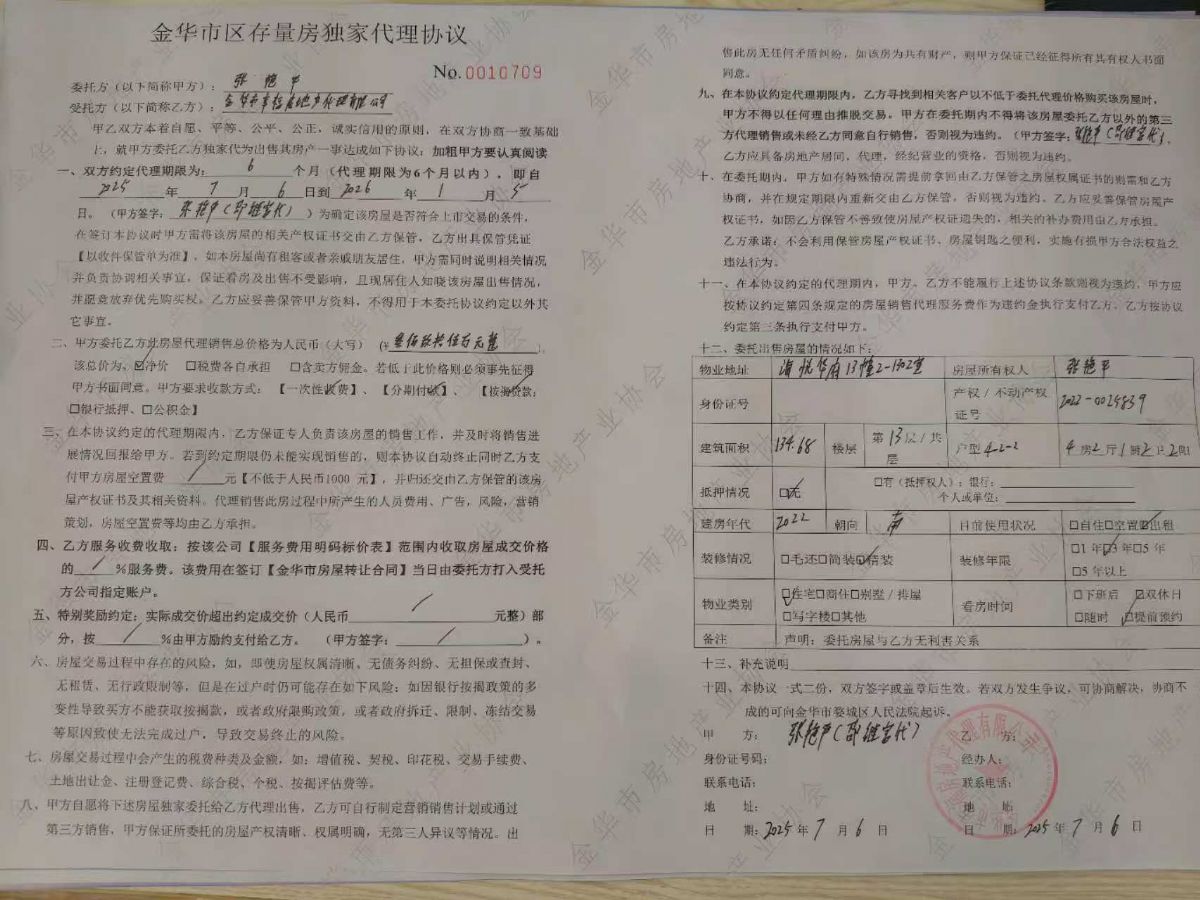 金华市区存量房独家代理协议
No. 0010709
委托方（以下简称甲方）：张艳平
受托方（以下简称乙方）：
甲乙双方本着自愿、平等、公平、公正，诚实信用的原则，在双方协商一致基础
上，就甲方委托乙方独家代为出售其房产一事达成如下协议：加粗甲方要认真阅读
一、双方约定代理期限为：6个月（代理期限为6个月以内），即自
2025年7月6日到2026年1月5
日。（甲方签字：张艳平）为确定该房屋是否符合上市交易的条件，
在签订本协议时甲方需将该房屋的相关产权证书交由乙方保管，乙方出具保管凭证
【以收件保管单为准】，如本房屋尚有租客或者亲戚朋友居住，甲方需同时说明相关情况
并负责协调相关事宜，保证看房及出售不受影响，且现居住人知晓该房屋出售情况，
并愿意放弃优先购买权。乙方应妥善保管甲方资料，不得用于本委托协议约定以外其
它事宜。
二、甲方委托乙方此房屋代理销售总价格为人民币（大写）(¥
该总价为，☑净价 □税费各自承担 □含卖方佣金。若低于此价格则必须事先征得
甲方书面同意。甲方要求收款方式：【一次性收费】、【分期付款】、【按揭贷款：
□银行抵押、□公积金】
三、在本协议约定的代理期限内，乙方保证专人负责该房屋的销售工作，并及时将销售进
展情况回报给甲方。若到约定期限仍未能实现销售的，则本协议自动终止同时乙方支
付甲方房屋空置费 / 元【不低于人民币1000 元】，并归还交由乙方保管的该房
屋产权证书及其相关资料。代理销售此房过程中所产生的人员费用、广告，风险，营销
策划，房屋空置费等均由乙方承担。
四、乙方服务收费收取：按该公司【服务费用明码标价表】范围内收取房屋成交价格
的 / %服务费。该费用在签订【金华市房屋转让合同】当日由委托方打入受托
方公司指定账户。
五、特别奖励约定：实际成交价超出约定成交价（人民币 / 元整）部
分，按 / %由甲方励约支付给乙方。（甲方签字： / ）。
六、房屋交易过程中存在的风险，如，即使房屋权属清晰、无债务纠纷、无担保或查封、
无租赁、无行政限制等，但是在过户时仍可能存在如下风险：如因银行按揭政策的多
变性导致买方不能获取按揭款，或者政府限购政策，或者政府拆迁、限制、冻结交易
等原因致使无法完成过户，导致交易终止的风险。
七、房屋交易过程中会产生的税费种类及金额，如：增值税、契税、印花税、交易手续费、
土地出让金、注册登记费、综合税、个税、按揭评估费等。
八、甲方自愿将下述房屋独家委托给乙方代理出售，乙方可自行制定营销销售计划或通过
第三方销售，甲方保证所委托的房屋产权清晰、权属明确，无第三人异议等情况。出
售此房无任何矛盾纠纷，如该房为共有财产，则甲方保证已经征得所有共有权人书面
同意。
九、在本协议约定代理期限内，乙方寻找到相关客户以不低于委托代理价格购买该房屋时，
甲方不得以任何理由推脱交易，甲方在委托期内不得将该房屋委托乙方以外的第三
方代理销售或未经乙方同意自行销售，否则视为违约。（甲方签字：张艳平），
乙方应具备房地产居间，代理，经纪营业的资格，否则视为违约。
十、在委托期内，甲方如有特殊情况需提前拿回由乙方保管之房屋权属证书的则需和乙方
协商，并在规定期限内重新交由乙方保管，否则视为违约。乙方应妥善保管房屋产
权证书，如因乙方保管不善致使房屋产权证遗失的，相关的补办费用由乙方承担。
乙方承诺：不会利用保管房屋产权证书、房屋钥匙之便利，实施有损甲方合法权益之
违法行为。
十一、在本协议约定的代理期内，甲方、乙方不能履行上述协议条款则视为违约，甲方应
按协议约定第四条规定的房屋销售代理服务费作为违约金执行支付乙方。乙方按协议
约定第三条执行支付甲方。
十二、委托出售房屋的情况如下：
物业地址 海悦华府13幢2-1302室 房屋所有权人 张艳平
身份证号 产权／不动产权证号 2022-0025839
建筑面积 134.68 楼层 第13层/共 层 户型4-2-2 4房2厅1厨2卫2阳
抵押情况 □无 □有（抵押权人）：银行：
个人或单位：
建房年代 2022 朝向 南 目前使用状况 □自住□空置☑出租
装修情况 □毛坯□简装☑精装 装修年限 □1年☑3年□5年
□5年以上
物业类别 ☑住宅□商住□别墅/排屋 看房时间 □下班后 □双休日
□写字楼□其他 □随时 ☑提前预约
备注 声明：委托房屋与乙方无利害关系
十三、补充说明
十四、本协议一式二份，双方签字或盖章后生效。若双方发生争议，可协商解决，协商不
成的可向金华市婺城区人民法院起诉。
甲 方：张艳平 乙 方：
身份证号码： 经办人：
联系电话： 联系电话：
地 址： 地 址：
日 期：2025年7月6日 日 期：2025年7月6日